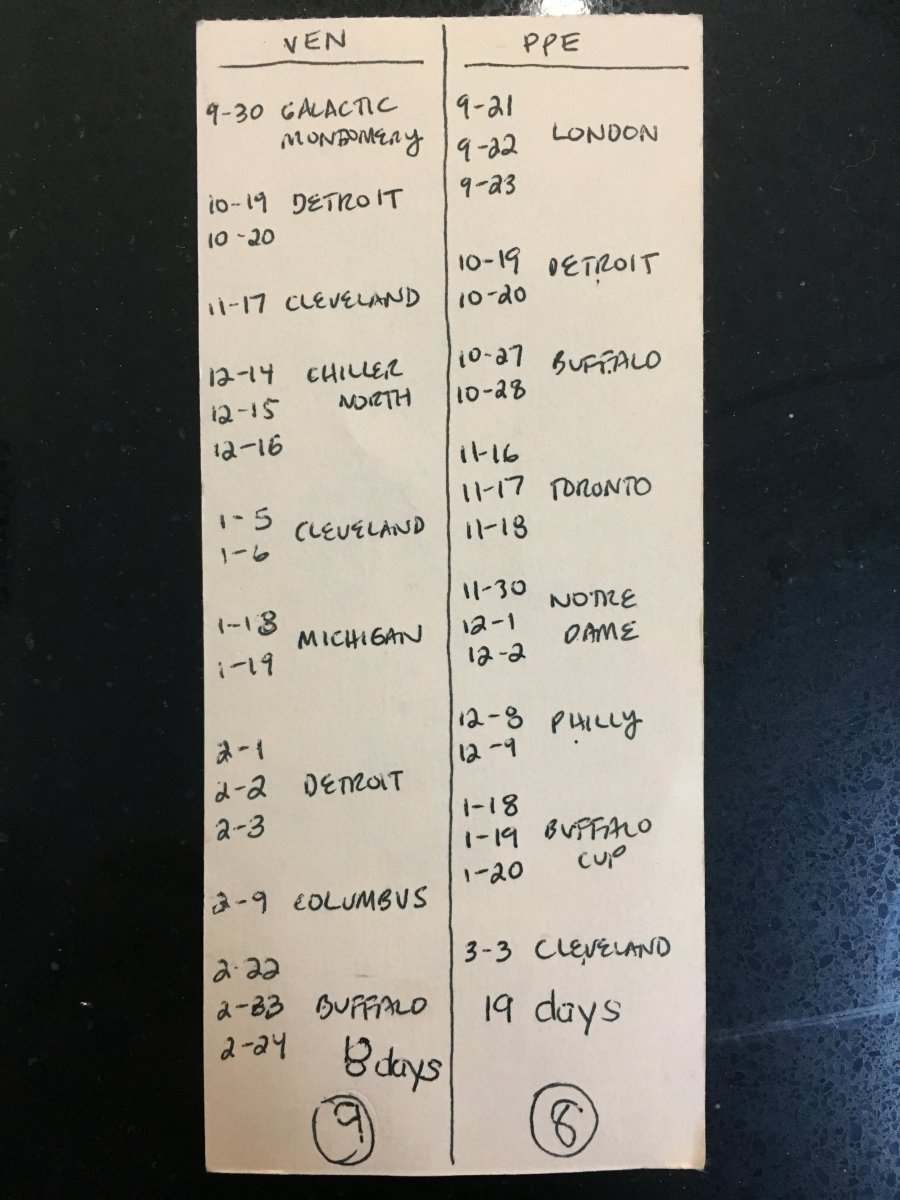 VEN
9-30 GALACTIC
MONTGOMERY
10-19 DETROIT
10-20
11-17 CLEVELAND
12-14 CHILLER
12-15 NORTH
12-16
1-5
CLEVELAND
1-6
1-18
MICHIGAN
1-19
2-1
2-2 DETROIT
2-3
2-9 COLUMBUS
2-22
2-23 BUFFALO
2-24
18 days
9
PPE
9-21
9-22 LONDON
9-23
10-19 DETROIT
10-20
10-27 BUFFALO
10-28
11-16
11-17 TORONTO
11-18
11-30 NOTRE
12-1 DAME
12-2
12-8 PHILLY
12-9
1-18
1-19 BUFFALO
CUP
1-20
3-3 CLEVELAND
19 days
8